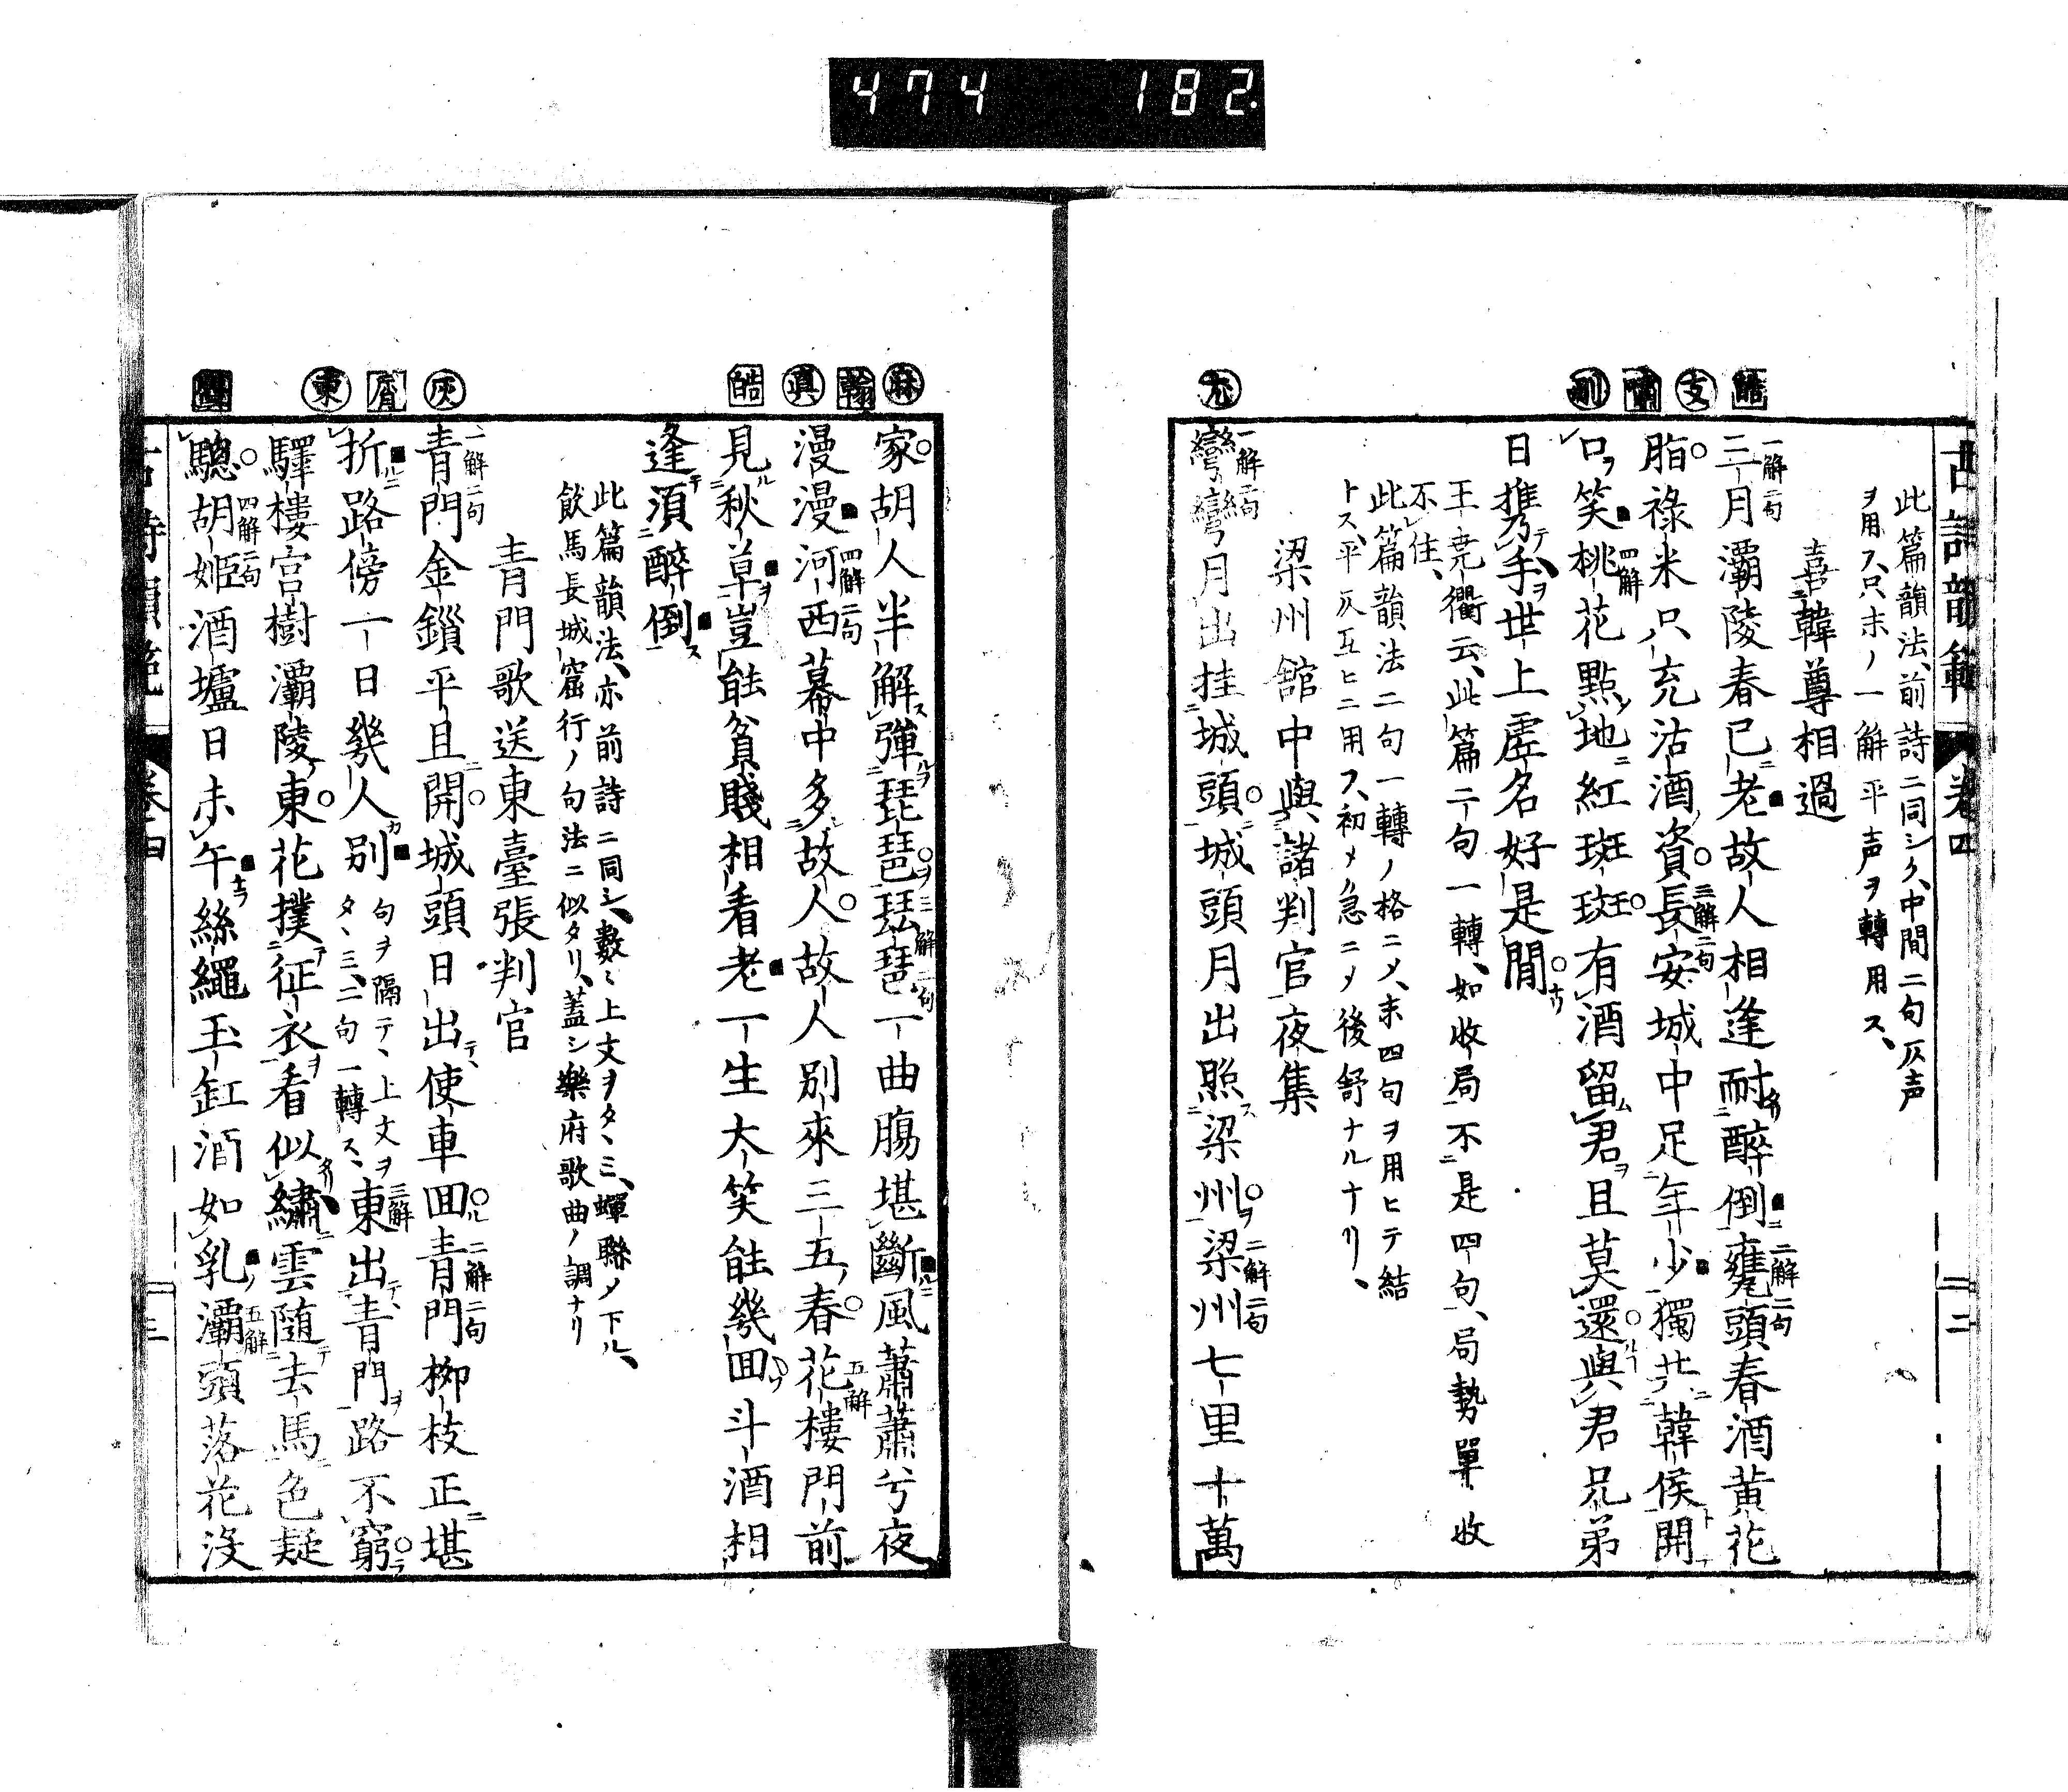 474 182
古詩韻範 卷四 二
皓 支 嘯 刪 尤
此篇韻法、前詩ニ同シク、中間二句仄声
ヲ用ス、只末ノ一解平声ヲ轉用ス、
喜韓尊相過
一解二句 三月灞陵春已老故人相逢耐醉倒 二解二句 甕頭春酒黄花
脂祿米只充沽酒資 三解二句 長安城中足年少獨共韓侯開
口笑 四解 桃花點地紅斑斑有酒留君且莫還與君兄弟
日攜手世上虛名好是閒
王堯衢云、此篇二句一轉、如收局不是四句、局勢單、收
不住、
此篇韻法二句一轉ノ格ニメ、末四句ヲ用ヒテ結
トス、平仄互ヒニ用ス、初メ急ニメ後舒ナルナリ、
梁州館中與諸判官夜集
一解二句 彎彎月出挂城頭城頭月出照梁州 二解二句 梁州七里十萬
麻 翰 眞 皓 灰 屑 東
家胡人半解彈琵琶 三解二句 琵琶一曲腸堪斷風蕭蕭兮夜
漫漫 四解二句 河西幕中多故人故人別來三五春 五解 花樓門前
見秋草豈能貧賤相看老一生大笑能幾回斗酒相
逢須醉倒
此篇韻法、亦前詩ニ同シ、數〻上文ヲタヽミ、蟬聯メ下ル、
飲馬長城窟行ノ句法ニ似タリ、蓋シ樂府歌曲ノ調ナリ
青門歌送東臺張判官
一解二句 青門金鎖平旦開城頭日出使車回 二解二句 青門柳枝正堪
折路傍一日幾人別 句ヲ隔テヽ上文ヲタヽミ、二句一轉ス、 三解 東出青門路不窮
驛樓宮樹灞陵東花撲征衣看似繡雲隨去馬色疑
驄 四解二句 胡姬酒壚日未午絲繩玉缸酒如乳 五解 灞頭落花沒
古詩韻範 卷四 三